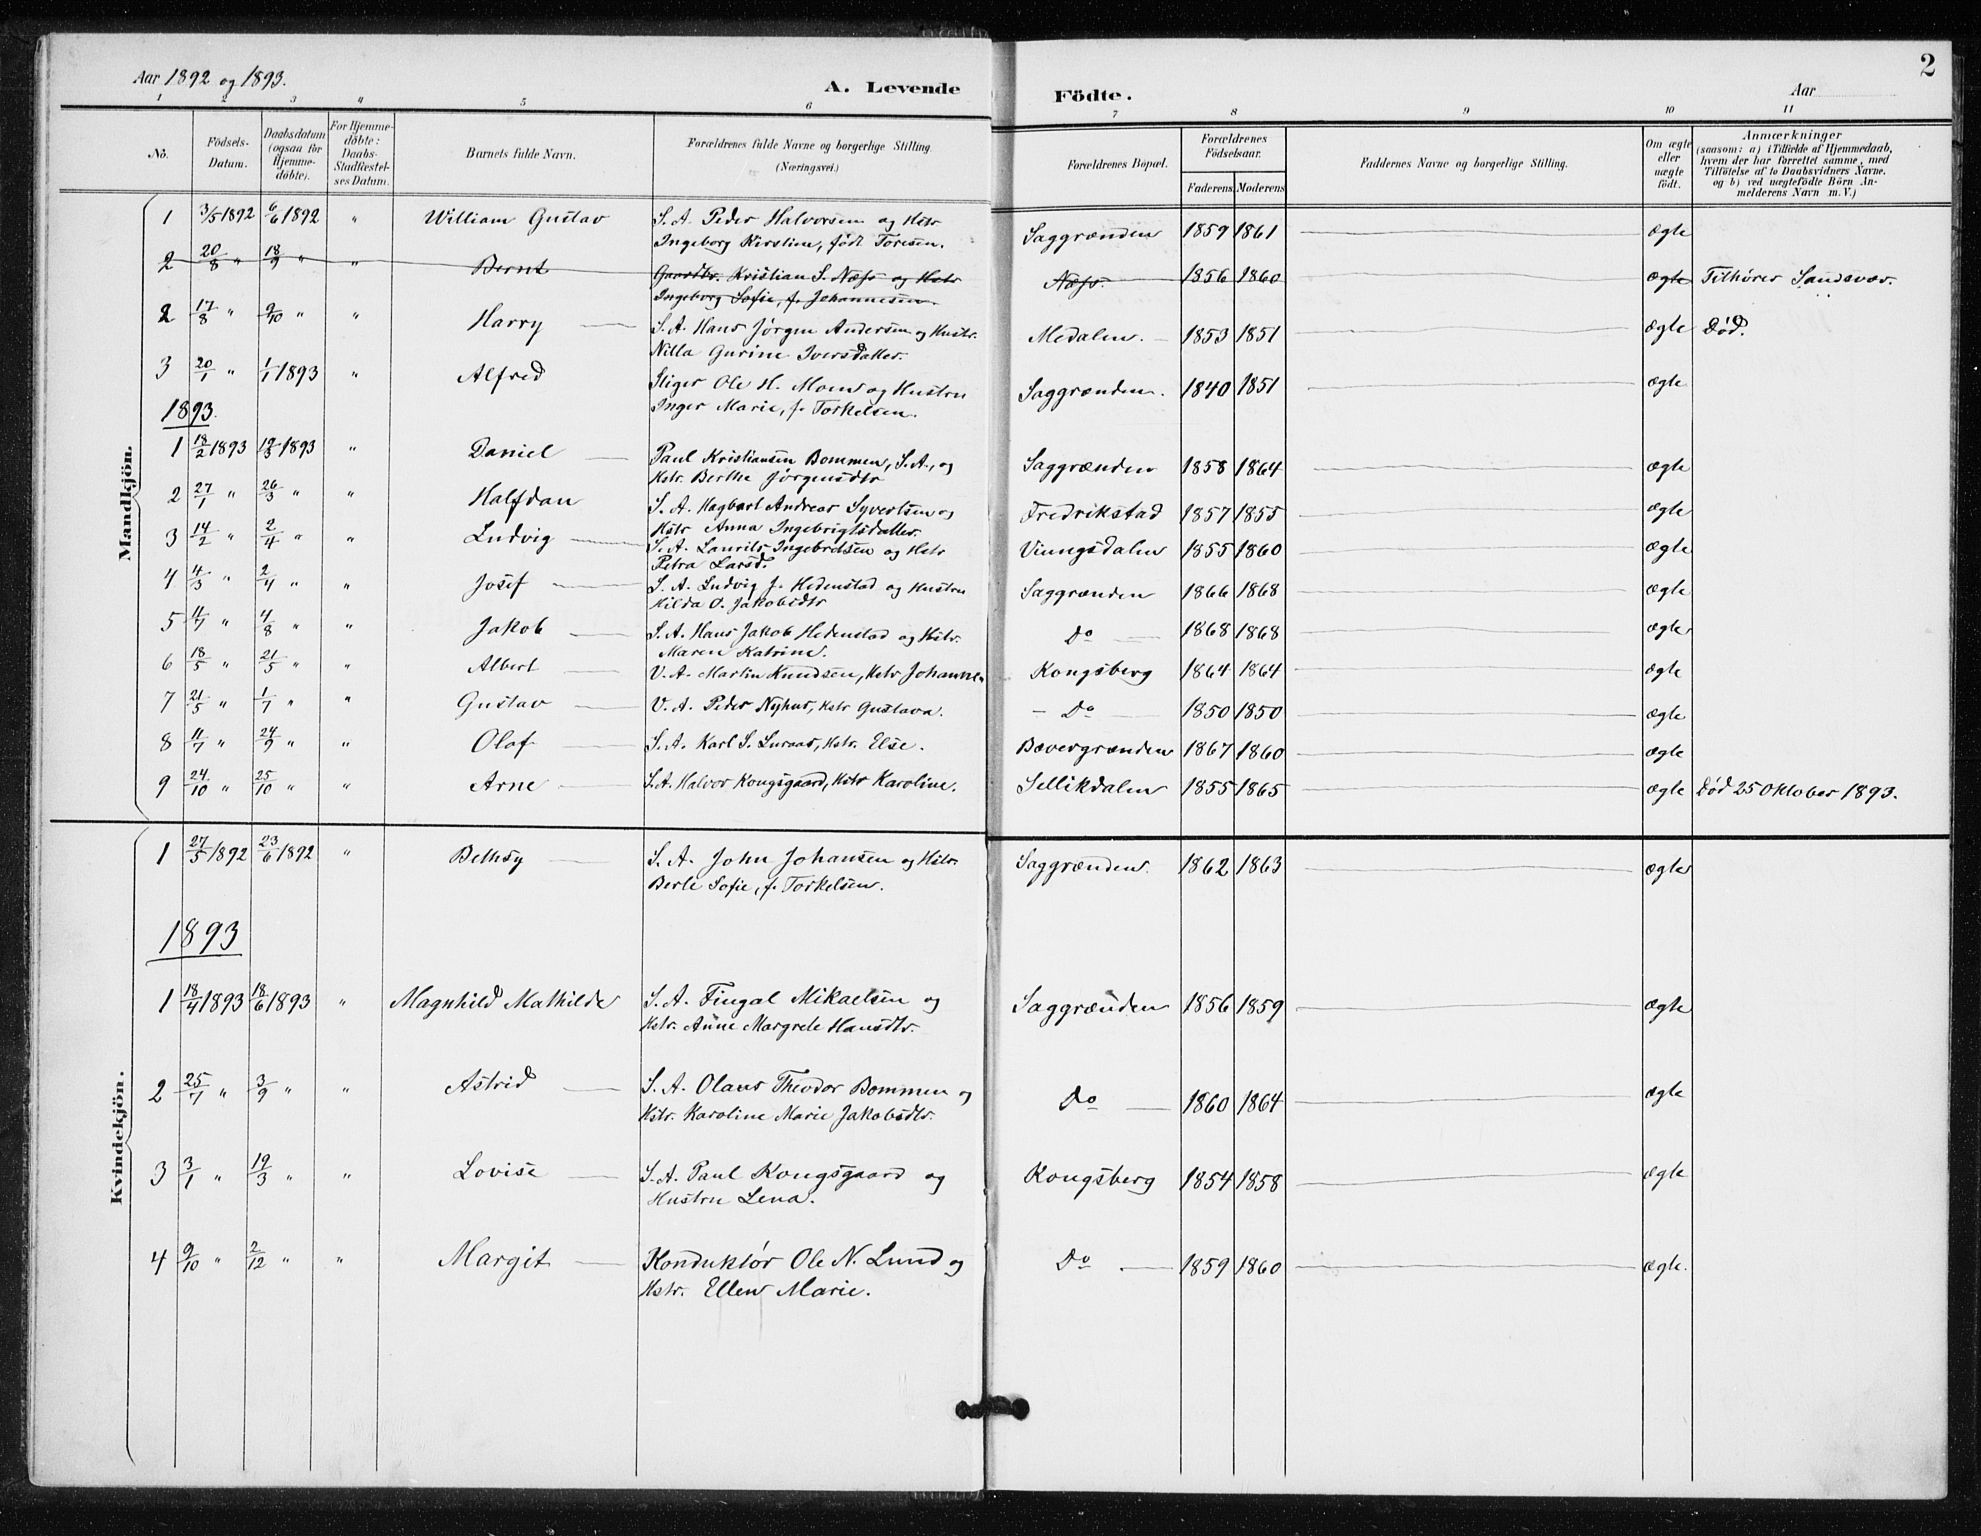 2
Aar 1892 og 1893.
A. Levende Födte.
Aar
1 2 3 4 5 6 7 8 9 10 11
No.
Födsels-Datum.
Daabsdatum (ogsaa for Hjemme-döbte).
For Hjemme-döbte: Daabs-Stadfæstel-ses Datum.
Barnets fulde Navn.
Forældrenes fulde Navne og borgerlige Stilling.
(Næringsvei.)
Forældrenes Bopæl.
Forældrenes Födselsaar.
Faderens Moderens
Faddernes Navne og borgerlige Stilling.
Om ægte eller uægte födt.
Anmærkninger
(saasom: a) i Tilfælde af Hjemmedaab, hvem der har forrettet samme, med Tilföielse af to Daabsvidners Navne. og b) ved uægtefödte Börn An-melderens Navn m. V.)
Mandkjön.
1 3/5 1892 6/6 1892 " William Gustav S. A. Peder Halvorsen og Hstr Saggrænden 1859 1861 ægte
Ingeborg Kirstine, født Toresen.
2 20/8 " 18/9 " " Bernt Gaardbr. Kristian S. Næss og Hstr Næss. 1856 1860 ægte Tilhører Sandsvær.
Ingeborg Sofie, f. Johannesen.
2 17/8 " 9/10 " " Harry S. A. Hans Jørgen Andersen og Hustr. Medalen. 1853 1851 ægte Død.
Nilla Gurine Iversdatter.
3 20/1 " 1/1 1893 " Alfred Stiger Ole H. Moen og Hustru Saggrænden. 1840 1851 ægte
Inger Marie, f. Torkelsen.
1893.
1 18/2 1893 19/3 1893 " Daniel Paul Kristiansen Bommen, S. A., og Saggrænden 1858 1864 ægte
Hstr Berthe Jørgensdtr
2 27/1 " 26/3 " " Halfdan S. A. Hagbart Andreas Syvertsen og Fredrikstad 1857 1855 ægte
Hstr Anna Ingebrigtsdatter.
3 14/2 " 2/4 " " Ludvig S. A. Laurits Ingebretsen og Hstr Viungsdalen 1855 1860 ægte
Petra Larsd.
4 4/3 " 2/4 " " Josef S. A. Ludvig J. Hedenstad og Hustru Saggrænden 1866 1868 ægte
Hilda O. Jakobsdtr
5 11/7 " 4/8 " " Jakob S. A. Hans Jakob Hedenstad og Hstr. Do 1868 1868 ægte
Maren Katrine.
6 18/5 " 21/5 " " Albert V. A. Martin Knudsen, Hstr Johanne Kongsberg 1864 1864 ægte
7 21/5 " 1/7 " " Gustav V. A. Peder Nyhus, Hstr Gustava. Do 1850 1850 ægte
8 11/7 " 24/9 " " Olaf S. A. Karl S. Luraas, Hstr. Else. Bævergrænden 1867 1860 ægte
9 24/10 " 25/10 " " Arne S. A. Halvor Kongsgaard, Hstr Karoline. Sellikdalen 1855 1865 ægte Død 25 Oktober 1893.
Kvindekjön.
1 27/5 1892 23/6 1892 " Bethsy S. A. John Johansen og Hstr. Saggrænden. 1862 1863 ægte
Berte Sofie, f. Torkelsen.
1893
1 18/4 1893 18/6 1893 " Magnhild Mathilde S. A. Fingal Mikaelsen og Saggrænden 1856 1859 ægte
Hstr. Anne Margrete Hansdtr.
2 25/7 " 3/9 " " Astrid S. A. Olaus Theodor Bommen og Do 1860 1864 ægte
Hstr. Karoline Marie Jakobsdtr.
3 3/1 " 19/3 " " Lovise S. A. Paul Kongsgaard og Kongsberg 1854 1858 ægte
Hustru Lena.
4 9/10 " 2/12 " " Margit Konduktør Ole N. Lund og Do 1859 1860 ægte.
Hstr. Ellen Marie.